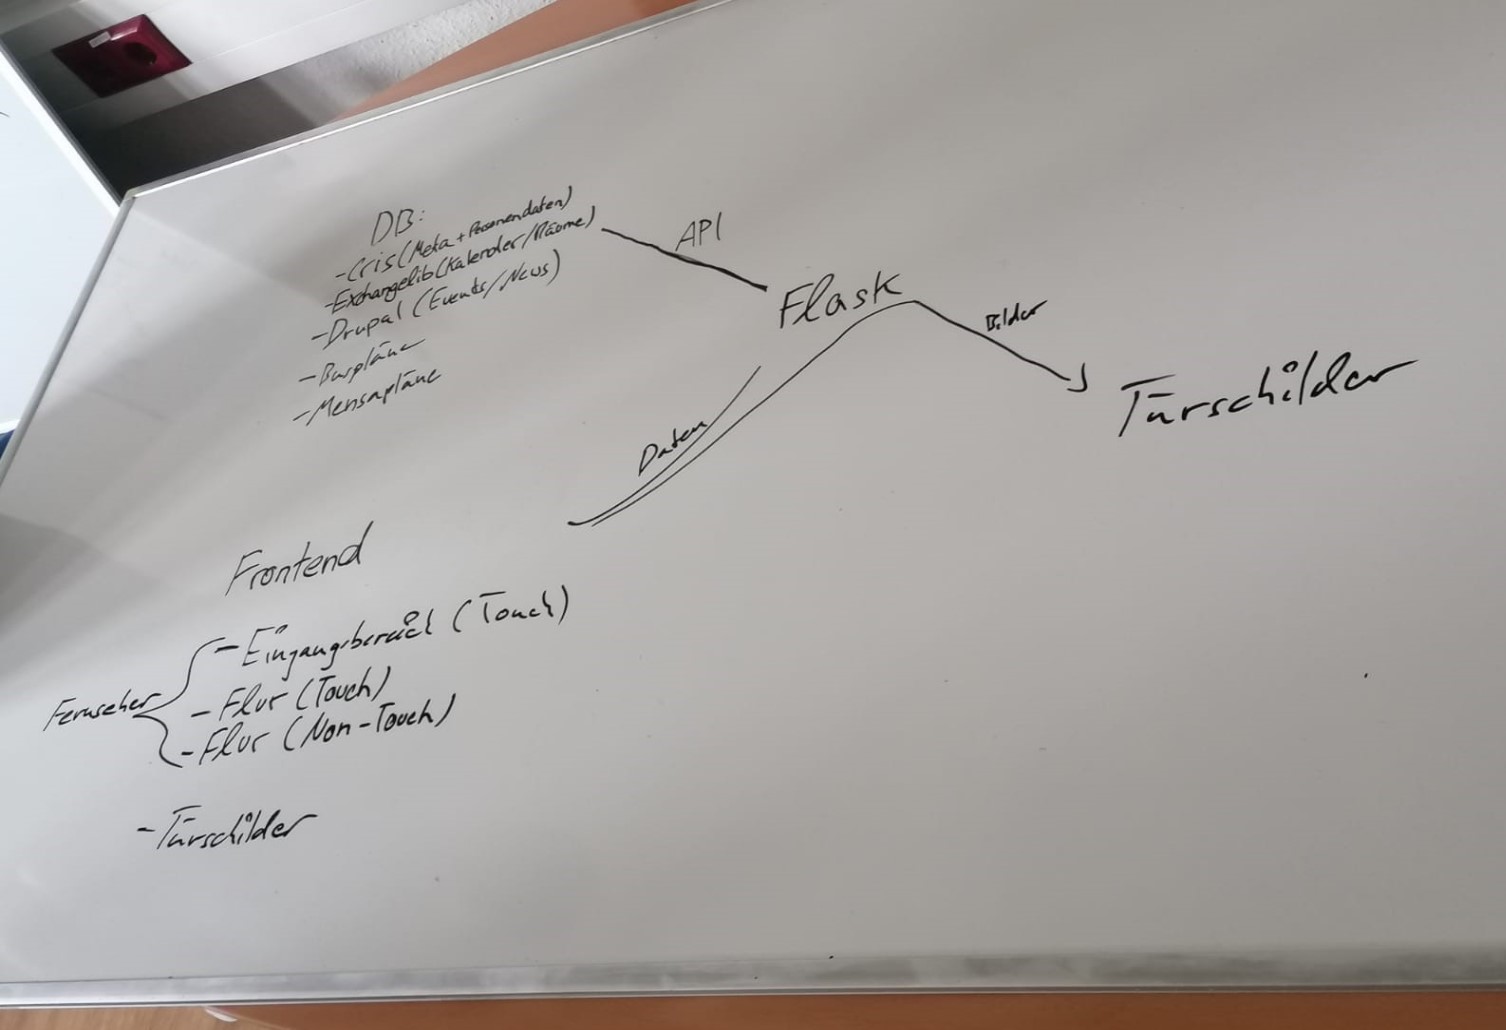 DB:
-Cris (Meta + Personendaten)
-Exchangelib (Kalender/Räume)
-Drupal (Events/News)
-Buspläne
-Mensapläne
API
Flask
Bilder
Türschilder
Daten
Frontend
Fernseher
- Eingangsbereich (Touch)
- Flur (Touch)
- Flur (Non-Touch)
- Türschilder